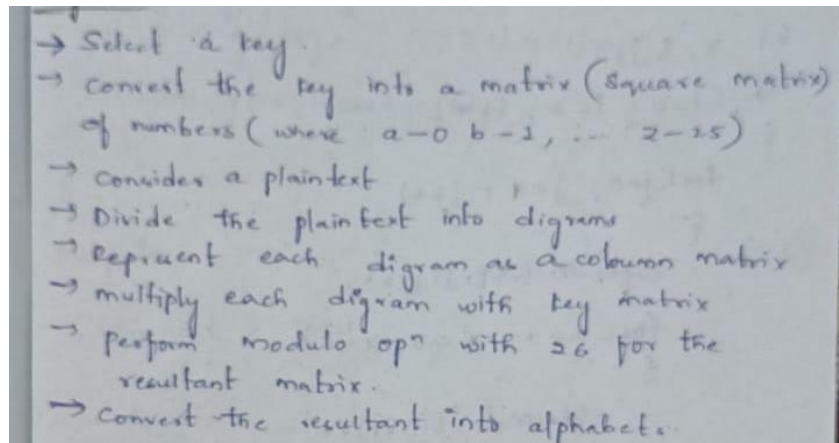 → Select a key.
→ Convert the key into a matrix (square matrix)
of numbers (where a-0 b-1, ... z-25)
→ Consider a plaintext
→ Divide the plain text into digrams
→ Represent each digram as a coloumn matrix
→ multiply each digram with key matrix
→ perform modulo opn with 26 for the
resultant matrix.
→ Convert the resultant into alphabets.